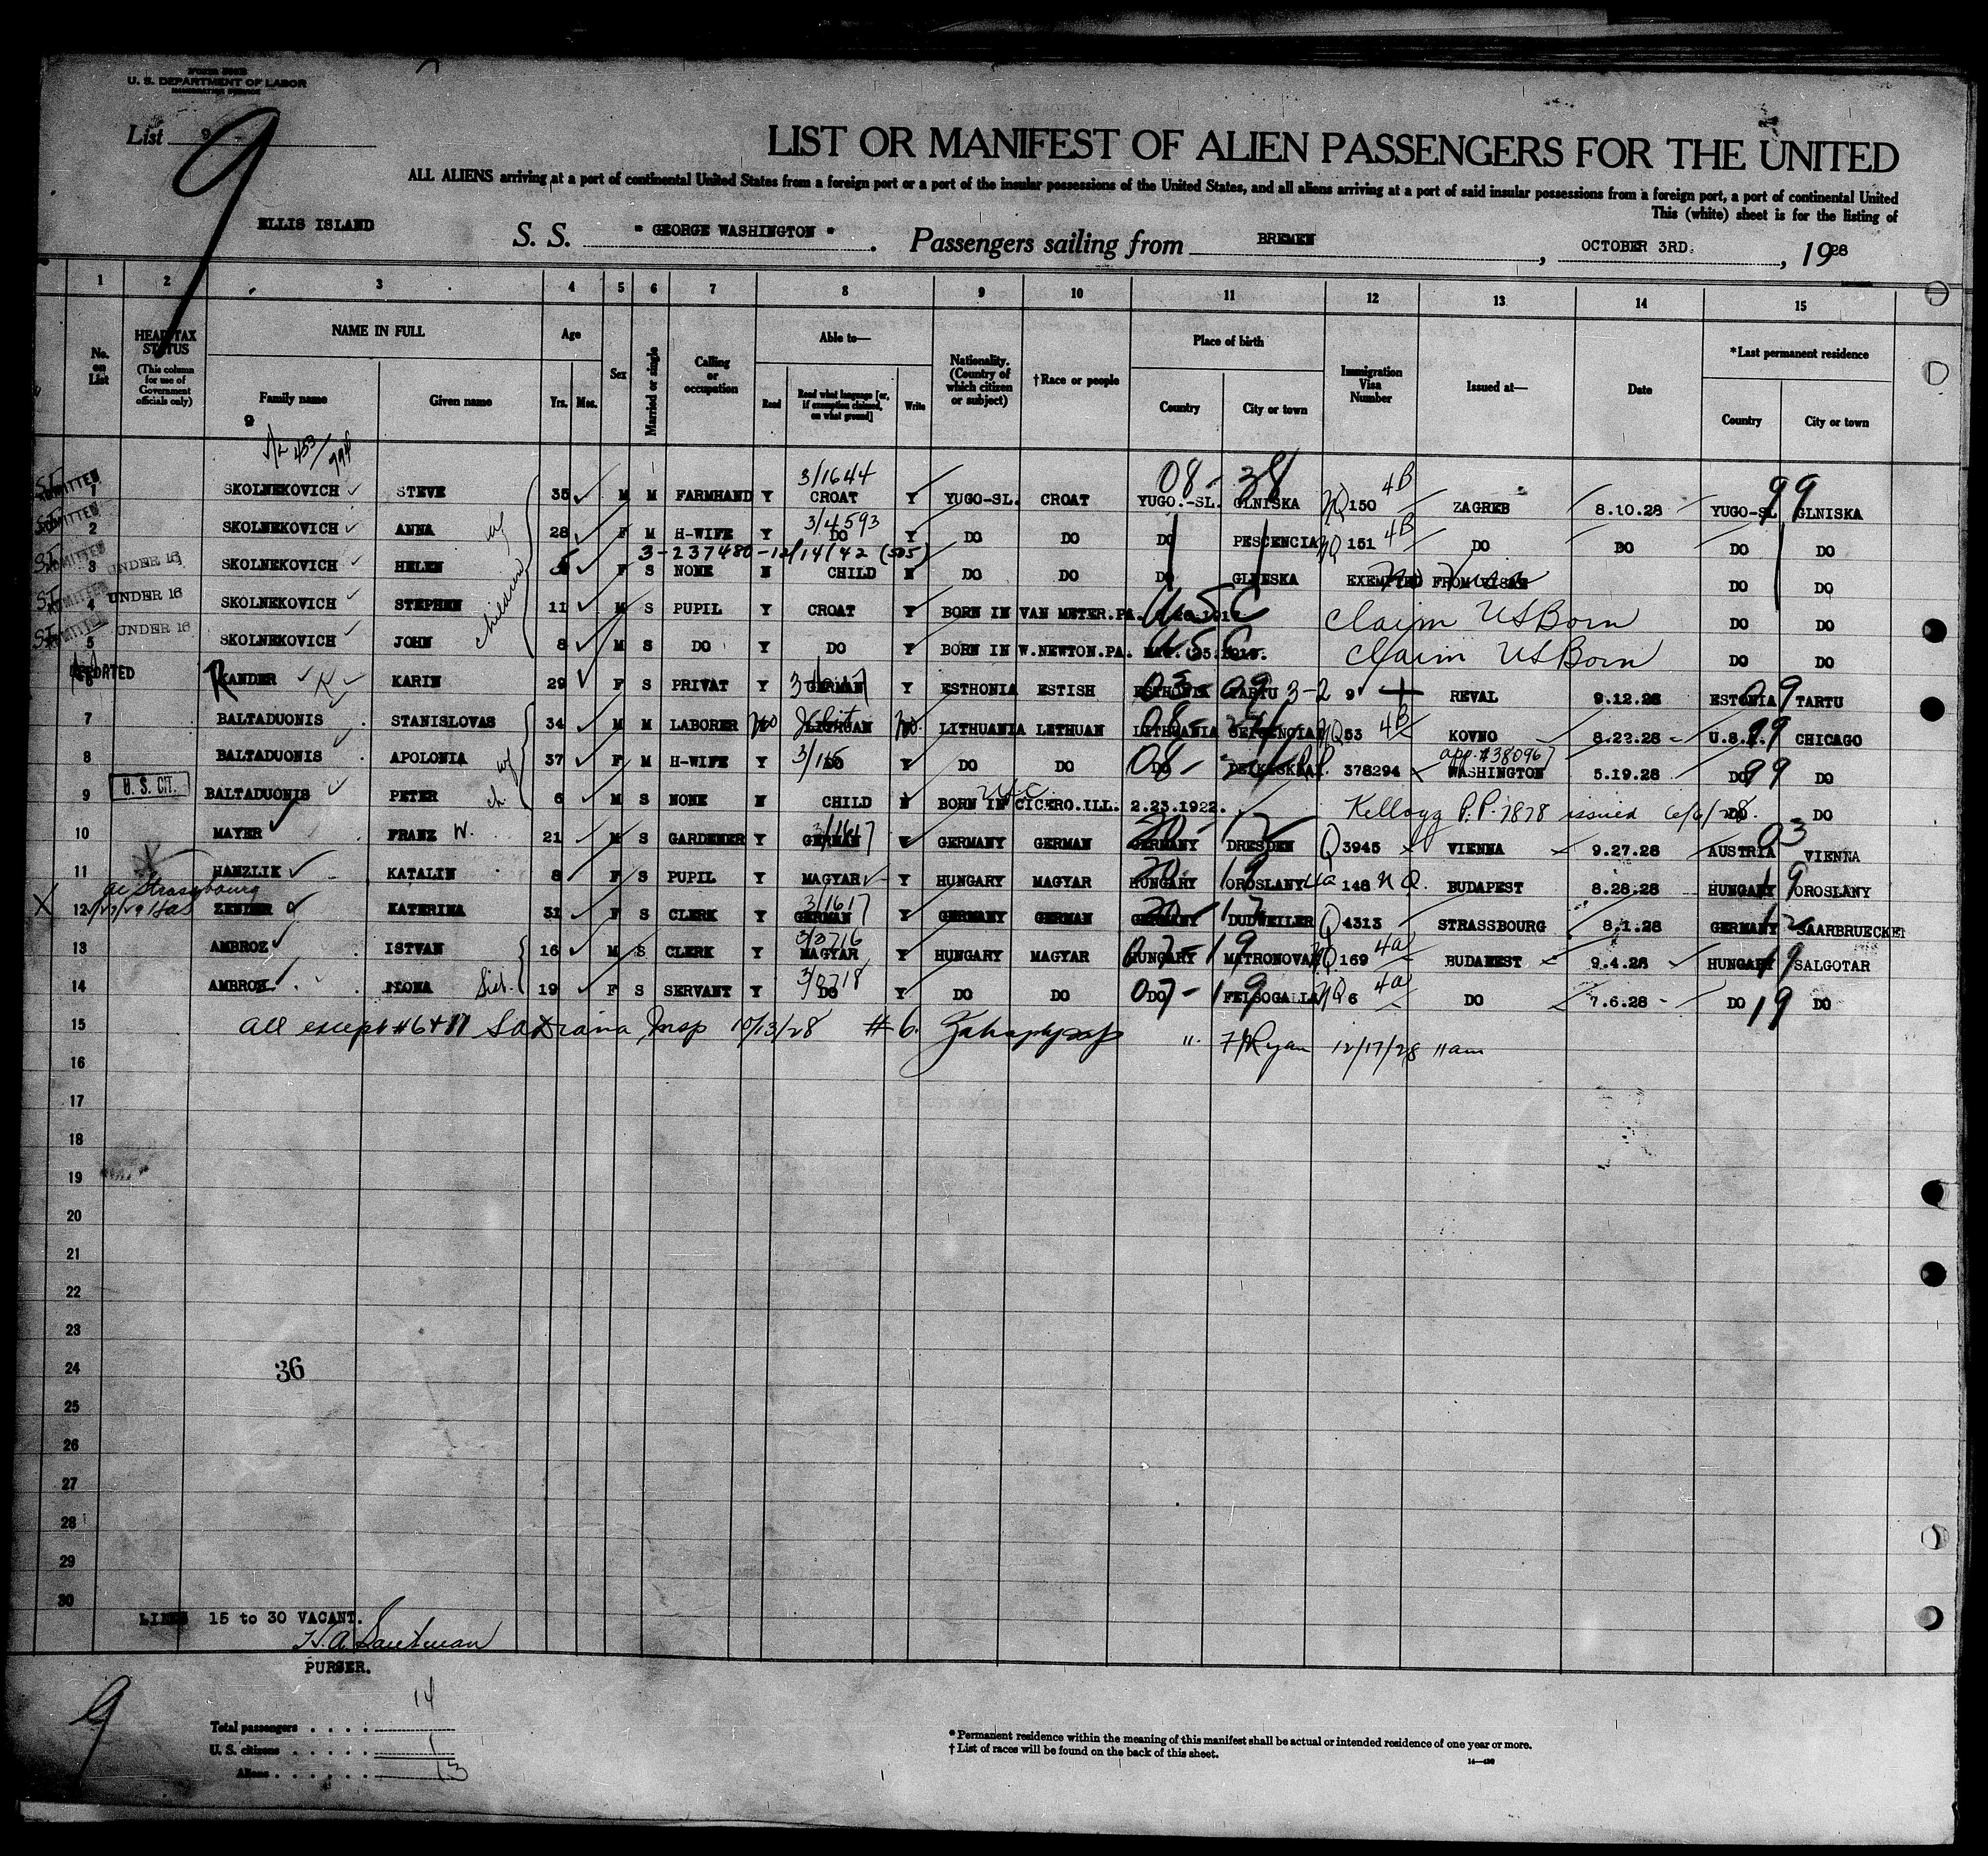 U. S. DEPARTMENT OF LABOR
List 9
9
LIST OR MANIFEST OF ALIEN PASSENGERS FOR THE UNITED
ALL ALIENS arriving at a port of continental United States from a foreign port or a port of the insular possessions of the United States, and all aliens arriving at a port of said insular possessions from a foreign port, a port of continental United
This (white) sheet is for the listing of
ELLIS ISLAND S. S. " GEORGE WASHINGTON ". Passengers sailing from BREMEN, OCTOBER 3RD., 1928
1 2 3 4 5 6 7 8 9 10 11 12 13 14 15
No. on List
HEAD-TAX STATUS (This column for use of Government officials only)
NAME IN FULL Family name Given name
Age Yrs. Mos.
Sex
Married or single
Calling or occupation
Able to— Read Read what language [or, if exemption claimed, on what ground] Write
Nationality. (Country of which citizen or subject)
†Race or people
Place of birth Country City or town
Immigration Visa Number
Issued at—
Date
*Last permanent residence Country City or town
9
3/1644 08-38 4B 99
ADMITTED 1 SKOLNEKOVICH STEVE 35 M M FARMHAND Y CROAT Y YUGO-SL. CROAT YUGO.-SL. GLNISKA NQ 150 ZAGREB 8.10.28 YUGO-SL GLNISKA
3/4593 4B
ADMITTED 2 SKOLNEKOVICH ANNA wf 28 F M H-WIFE Y DO Y DO DO DO PESCENCIA NQ 151 DO DO DO DO
3-237480-12/14/42 (505)
ADMITTED 3 UNDER 16 SKOLNEKOVICH HELEN F S NONE N CHILD N DO DO DO GLNISKA EXEMPTED FROM VISAS DO DO
ADMITTED 4 UNDER 16 SKOLNEKOVICH STEPHEN children 11 M S PUPIL Y CROAT Y BORN IN VAN METER.PA. USC Claim US Born DO DO
5 UNDER 16 SKOLNEKOVICH JOHN 8 M S DO Y DO Y BORN IN W.NEWTON.PA. USC Claim US Born DO DO
DEPORTED 6 KANDER K KARIN 29 F S PRIVAT Y GERMAN Y ESTHONIA ESTISH ESTHONIA TARTU 3-2 9 REVAL 9.12.28 ESTONIA TARTU
7 BALTADUONIS STANISLOVAS 34 M M LABORER No LITHUAN No LITHUANIA LETHUAN LITHUANIA NQ 53 4B KOVNO 8.22.28 U.S.A. CHICAGO
app.#380967
8 BALTADUONIS APOLONIA wf 37 F M H-WIFE Y DO Y DO DO DO 378294 WASHINGTON 5.19.28 DO DO
USC
U. S. CIT. 9 BALTADUONIS PETER ch. 6 M S NONE N CHILD N BORN IN CICERO.ILL. 2.23.1922. Kellogg P.P. 7878 issued 6/6/28. DO DO
10 MAYER FRANZ W. 21 M S GARDENER Y GERMAN Y GERMANY GERMAN GERMANY DRESDEN Q 3945 VIENNA 9.27.28 AUSTRIA 03 VIENNA
11 HANZLIK KATALIN 8 F S PUPIL Y MAGYAR Y HUNGARY MAGYAR HUNGARY OROSLANY 4a 148 NQ. BUDAPEST 8.28.28 HUNGARY OROSLANY
at Strassbourg
3/1617
X 12 ZENDER KATERINA 31 F S CLERK Y GERMAN Y GERMANY GERMAN GERMANY DUDWEILER Q 4313 STRASSBOURG 8.1.28 GERMANY SAARBRUECKEN
3/0716
13 AMBROZ ISTVAN 16 M S CLERK Y MAGYAR Y HUNGARY MAGYAR HUNGARY MATRONOVAK NQ 169 4a BUDAPEST 9.4.28 HUNGARY SALGOTAR
3/0718
14 AMBROZ ILONA Sist. 19 F S SERVANT Y DO Y DO DO DO FELSOGALLA NQ 6 4a DO 7.6.28 DO DO
15 all except #6 + 11 Insp 10/13/28 #6. " F.J.Ryan 12/17/28 11am
16
17
18
19
20
21
22
23
24 36
25
26
27
28
29
30
LINES 15 to 30 VACANT.
H.A. Lautman
PURSER.
9
Total passengers 14
U. S. citizens 1
Aliens 13
* Permanent residence within the meaning of this manifest shall be actual or intended residence of one year or more.
† List of races will be found on the back of this sheet.
14—430